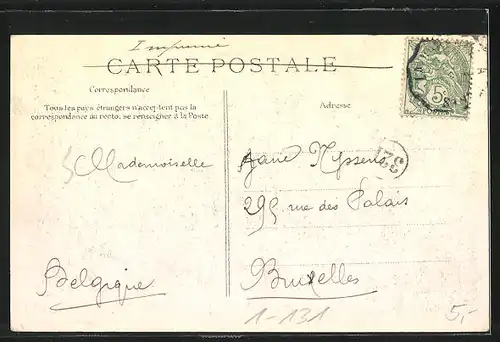 Imprimé
CARTE POSTALE
Correspondance
Tous les pays étrangers n'acceptent pas la
correspondance au recto, se renseigner à la Poste
Adresse
5
Mademoiselle
Jane Nyssens
295 rue des Palais
Belgique
Bruxelles
1-131
5,-